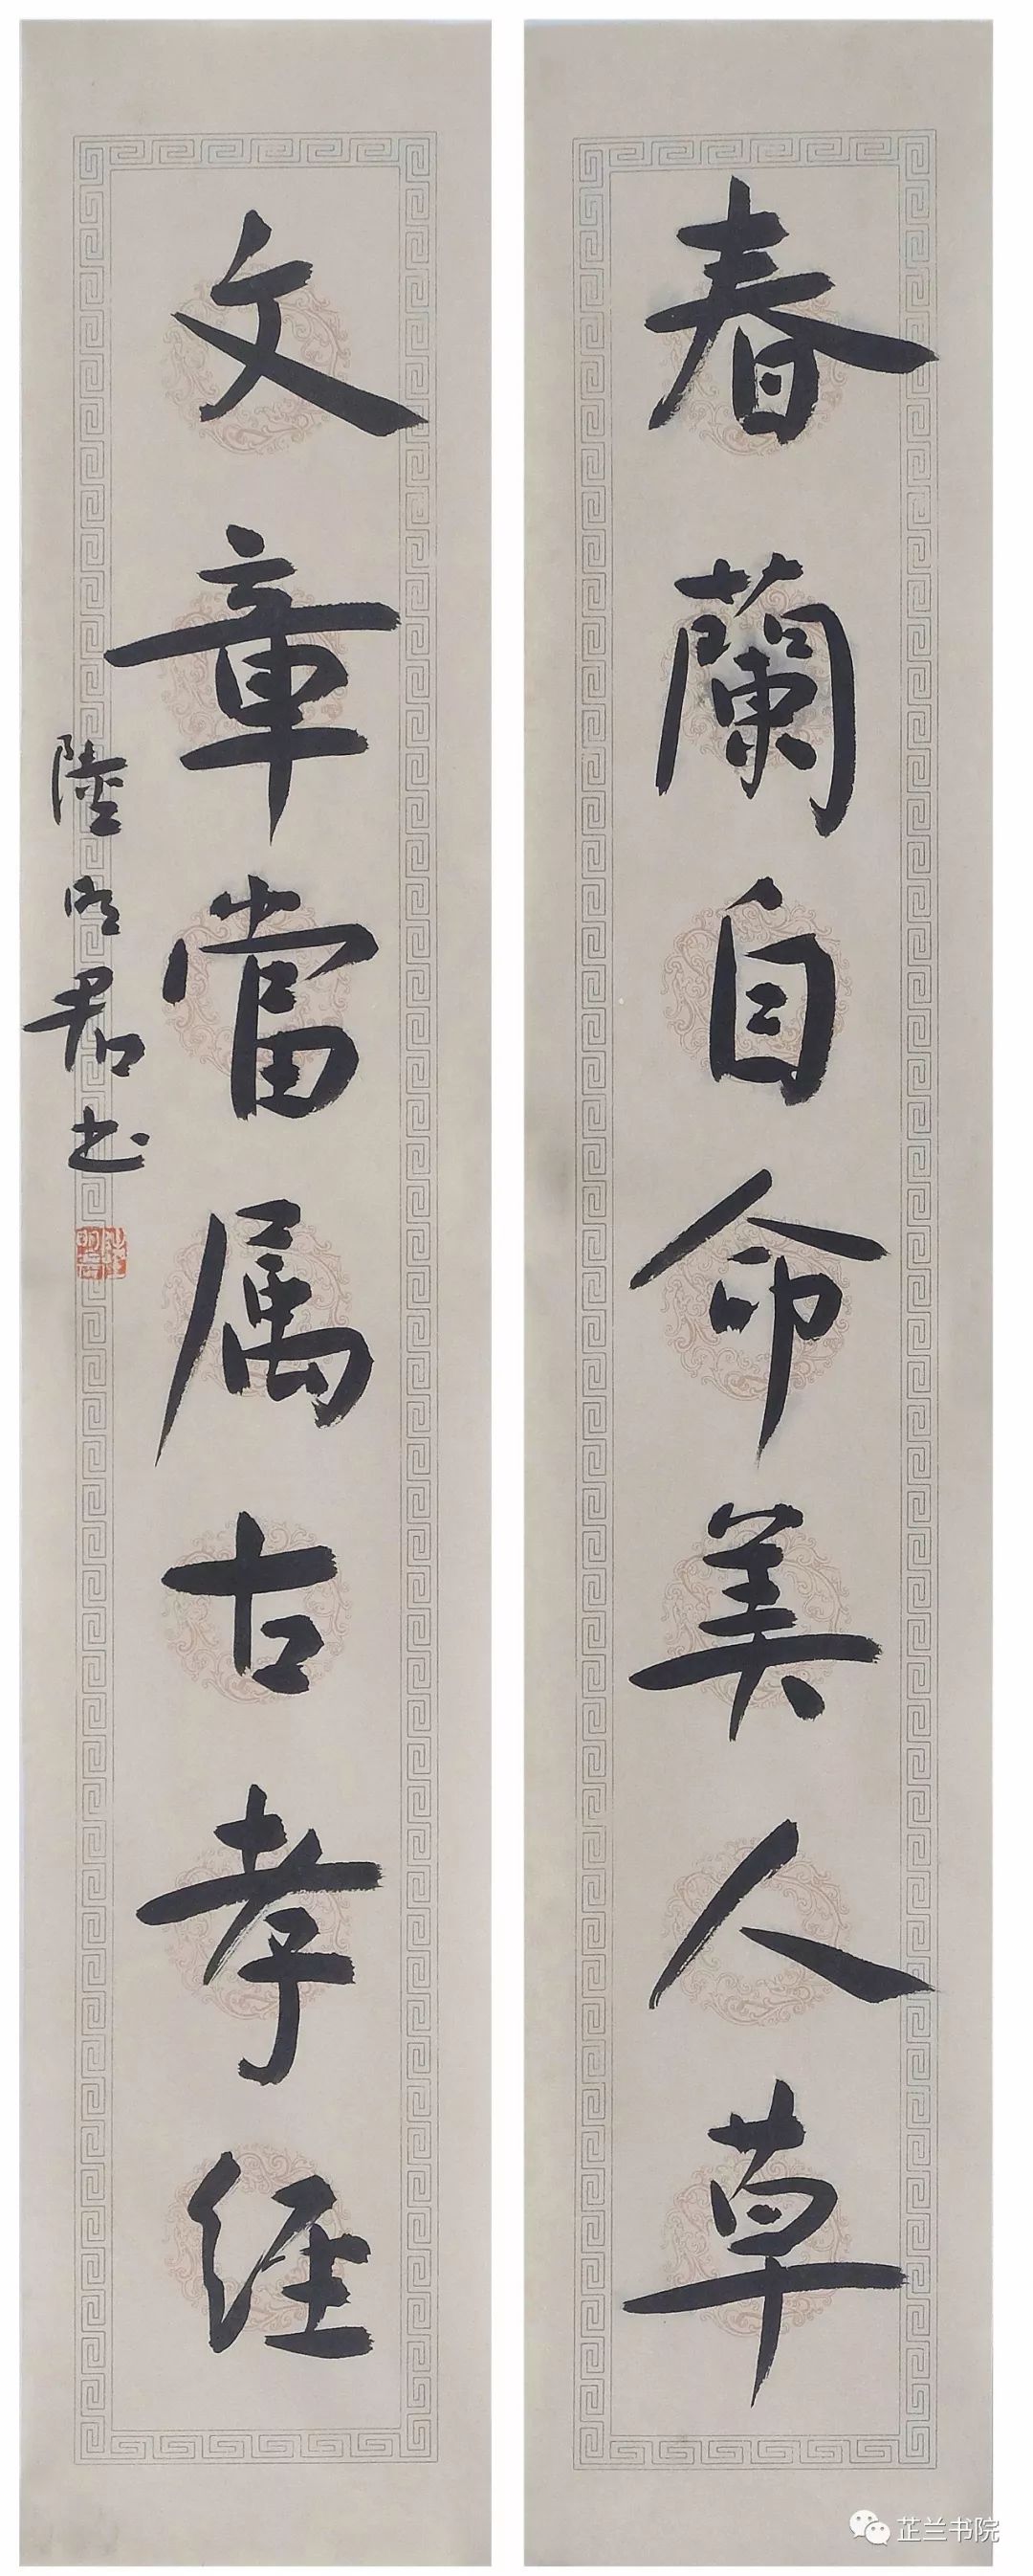 春蘭自命美人草
文章當属古孝经
陸明君书
芷兰书院